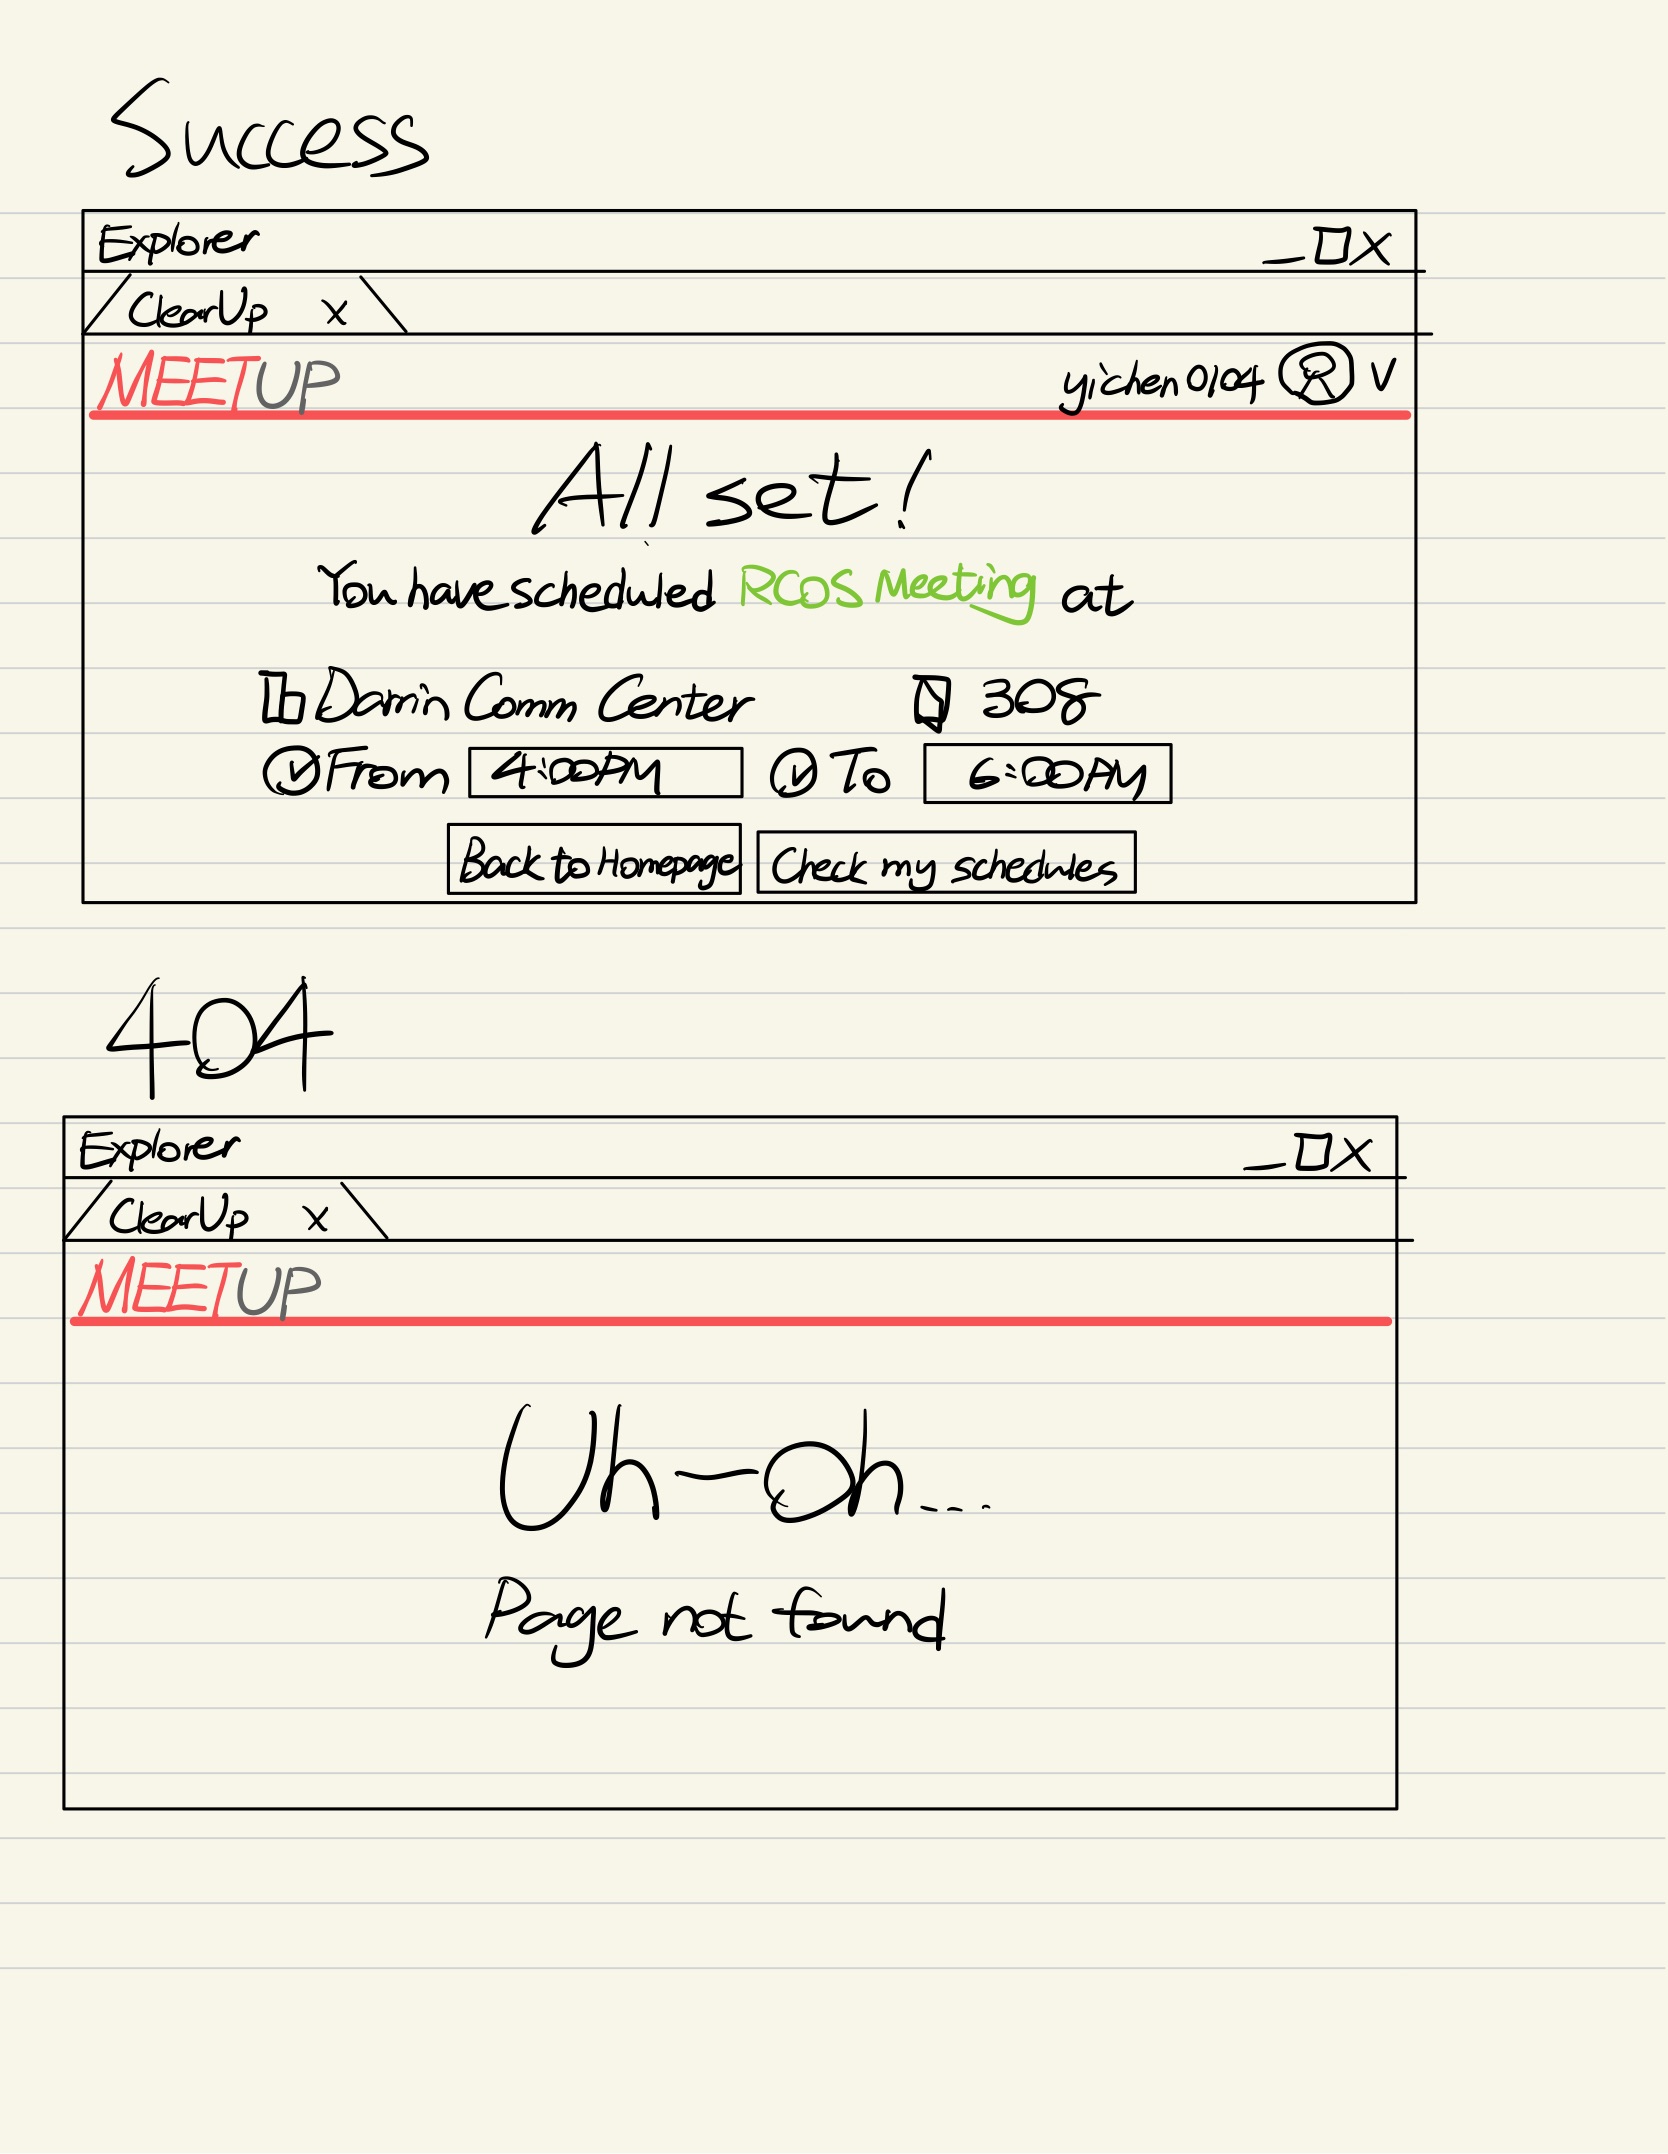 Success
Explorer
ClearUp x
MEETUP yichen0104
All set!
You have scheduled RCOS Meeting at
Darrin Comm Center 308
From 4:00PM To 6:00PM
Back to Homepage Check my schedules
404
Explorer
ClearUp x
MEETUP
Uh-oh...
Page not found